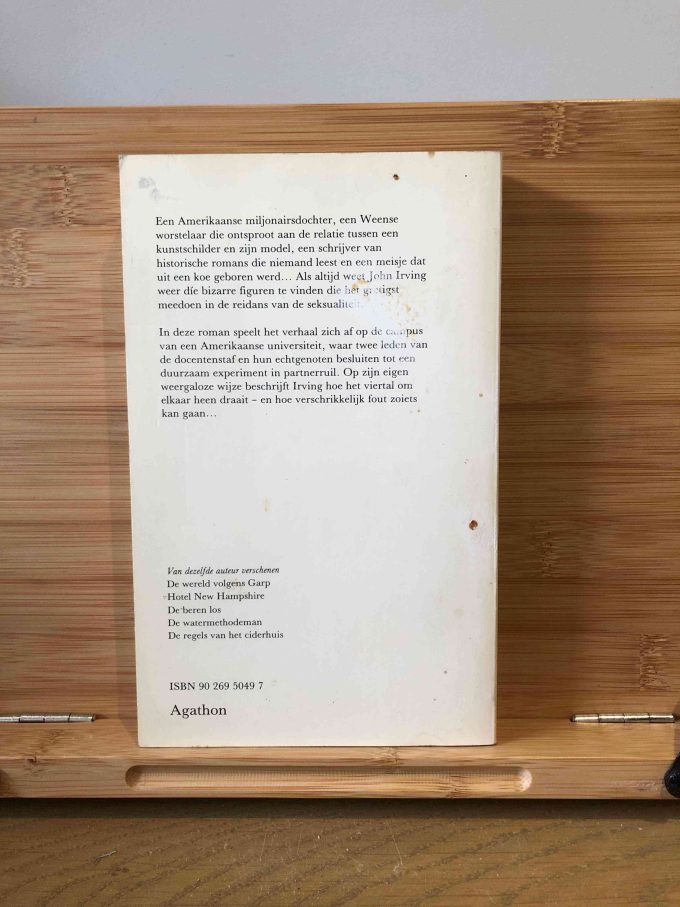 Een Amerikaanse miljonairsdochter, een Weense
worstelaar die ontsproot aan de relatie tussen een
kunstschilder en zijn model, een schrijver van
historische romans die niemand leest en een meisje dat
uit een koe geboren werd... Als altijd weet John Irving
weer díe bizarre figuren te vinden die het gretigst
meedoen in de reidans van de seksualiteit.
In deze roman speelt het verhaal zich af op de campus
van een Amerikaanse universiteit, waar twee leden van
de docentenstaf en hun echtgenoten besluiten tot een
duurzaam experiment in partnerruil. Op zijn eigen
weergaloze wijze beschrijft Irving hoe het viertal om
elkaar heen draait – en hoe verschrikkelijk fout zoiets
kan gaan...
Van dezelfde auteur verschenen
De wereld volgens Garp
Hotel New Hampshire
De beren los
De watermethodeman
De regels van het ciderhuis
ISBN 90 269 5049 7
Agathon